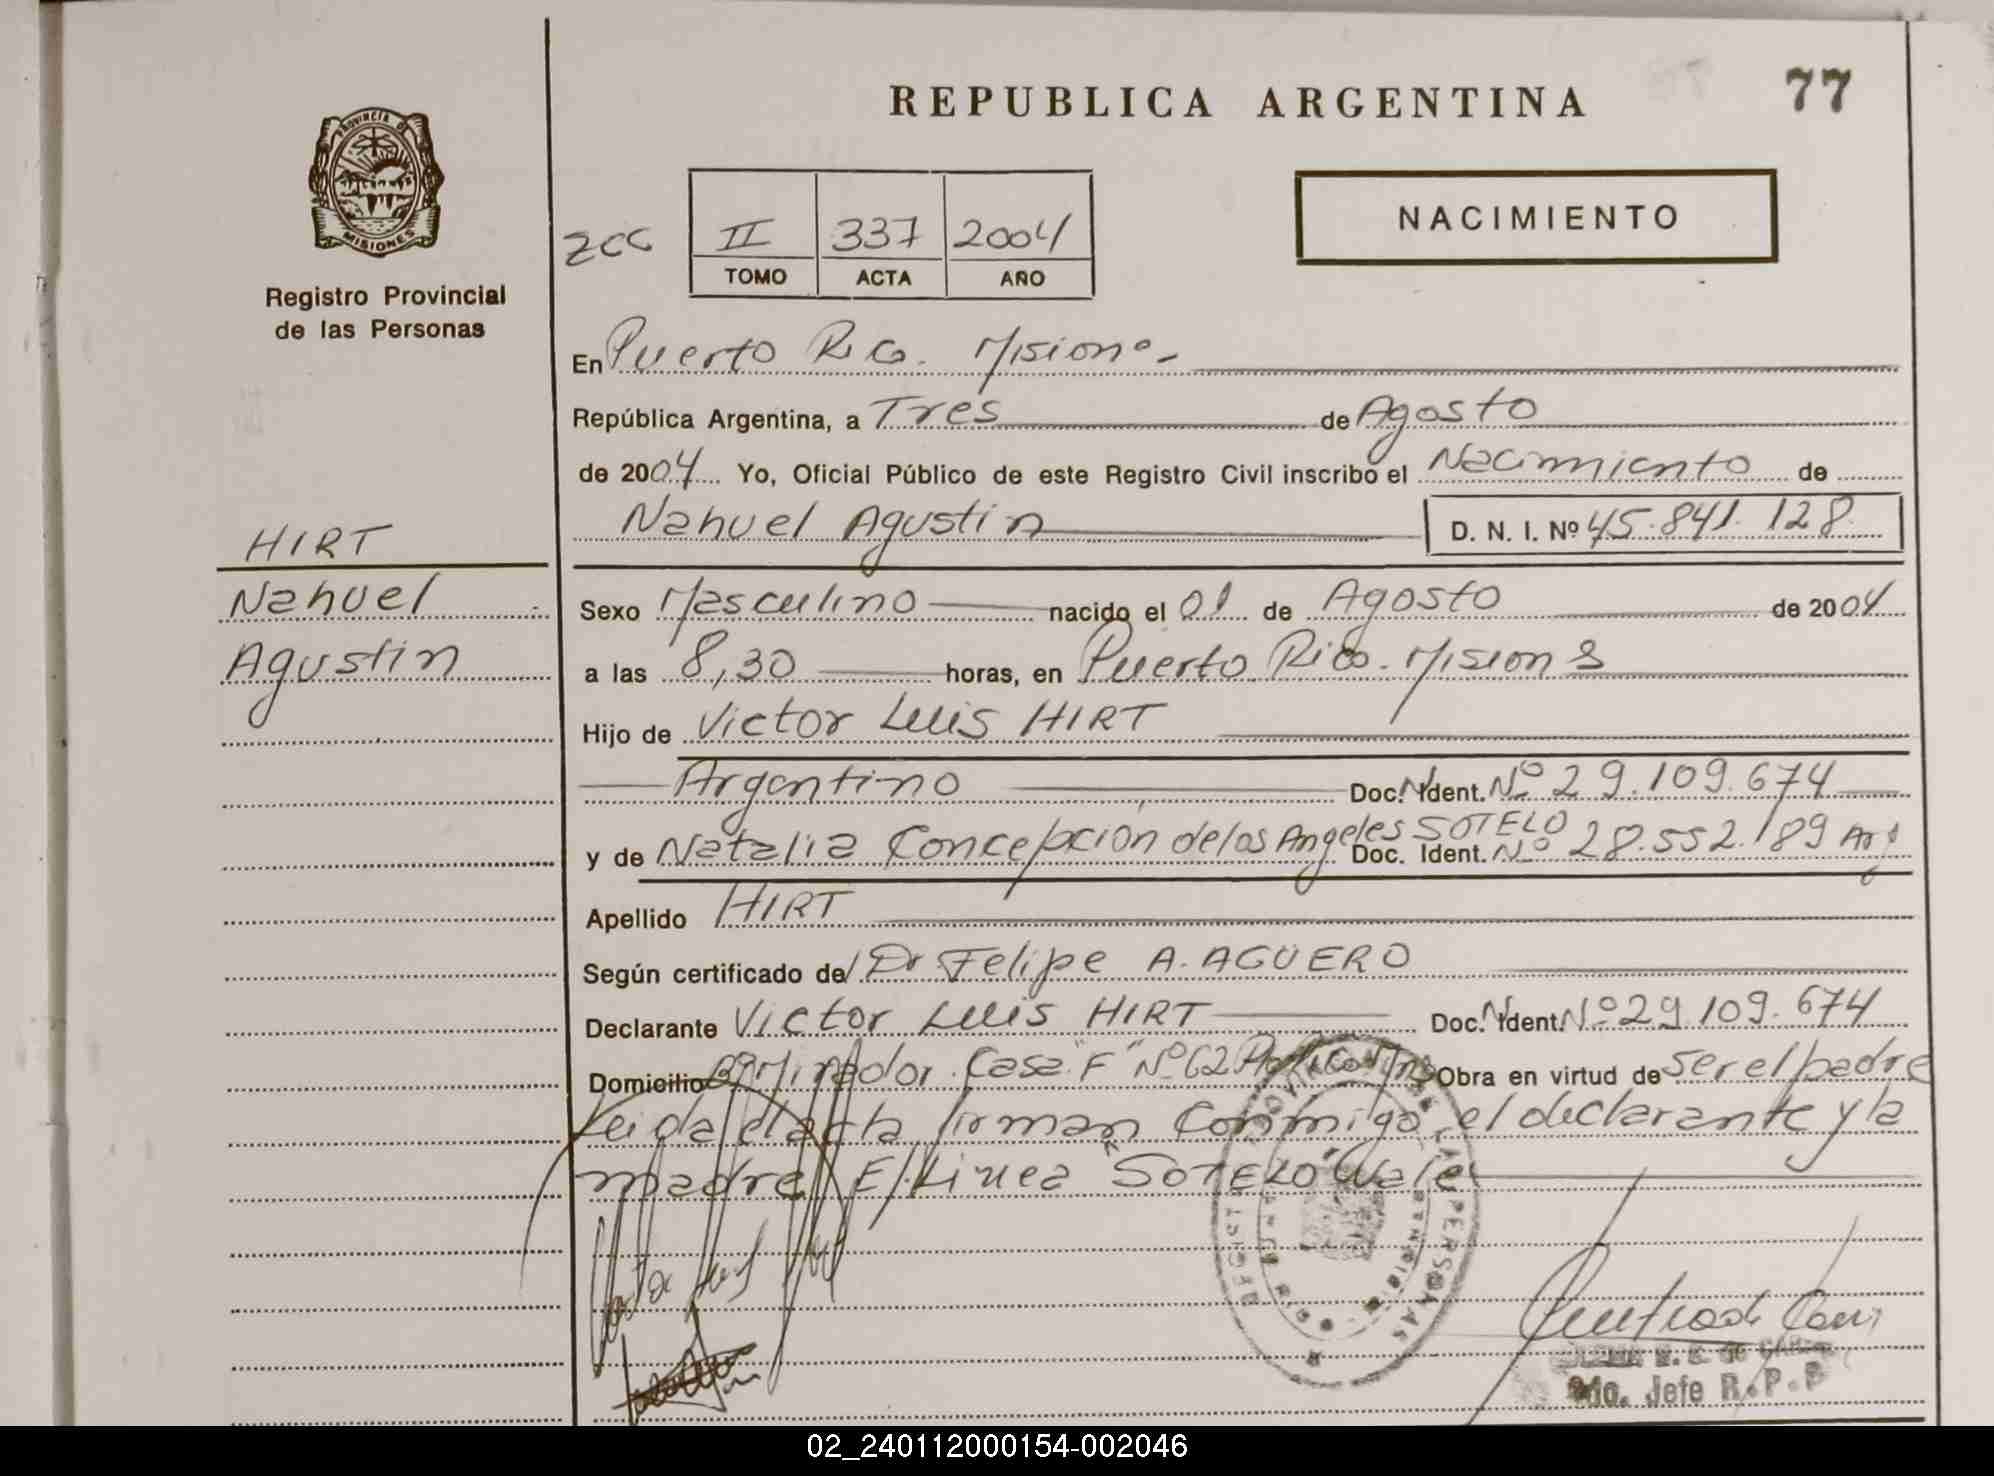 REPUBLICA ARGENTINA
77
PROVINCIA DE
MISIONES
Registro Provincial
de las Personas
II 337 2004
TOMO ACTA AÑO
NACIMIENTO
En Puerto Rico. Misiones
República Argentina, a Tres de Agosto
de 2004 Yo, Oficial Público de este Registro Civil inscribo el Nacimiento de
Nahuel Agustin D. N. I. Nº 45.841.128
HIRT
Nahuel
Agustin
Sexo Masculino nacido el 01 de Agosto de 2004
a las 8,30 horas, en Puerto Rico. Misiones
Hijo de Victor Luis HIRT
Argentino Doc. N. Ident. Nº 29.109.674
y de Natalia Concepcion de los Angeles SOTELO Doc. Ident. Nº 28.552.189 Arg
Apellido HIRT
Según certificado del Dr Felipe A. AGÜERO
Declarante Victor Luis HIRT Doc. N. Ident. Nº 29.109.674
Domicilio Bº Mirador Casa "F" Nº 62 Obra en virtud de ser el padre
Leida el acta firman conmigo el declarante y la
madre E/Linea "SOTELO" Vale
REGISTRO PROVINCIAL DE LAS PERSONAS
2do. Jefe R.P.P
02_240112000154-002046